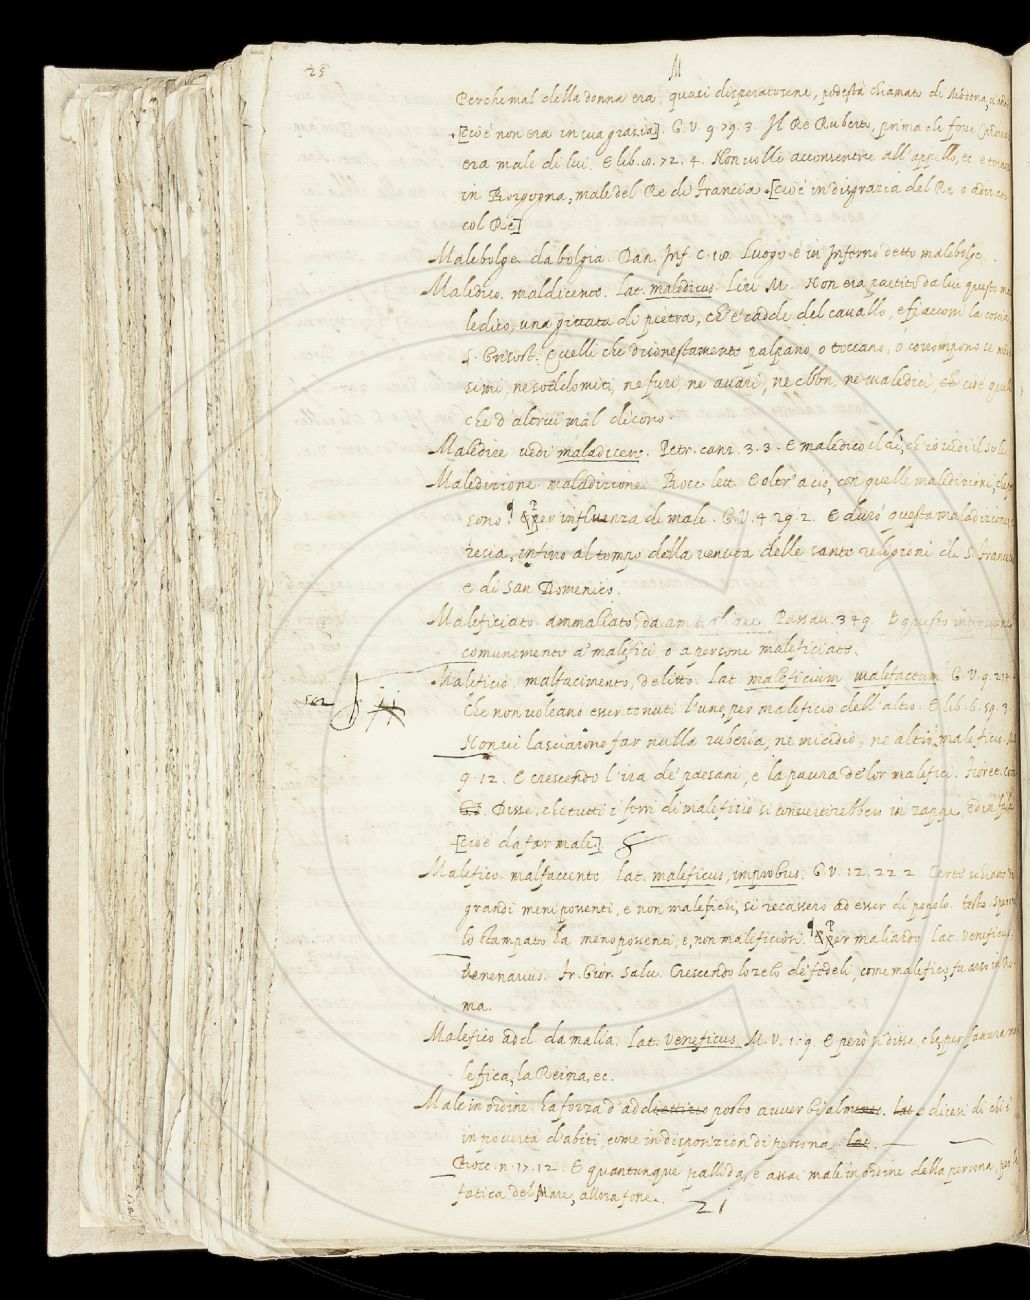 25
M
Perche mal della donna era, quasi disperatosene, podestà chiamato di Modona,
[cioè non era in sua grazia]. G. V. 9. 79. 3. Il Re Ruberto, prima che fosse
era male di lui. E lib. 10. 72. 4. Non volle acconsentire all'appello, ec. e
in Borgogna, male del Re di Francia [cioè in disgrazia del Re o adirato
col Re]
Malebolge da bolgia. Dan. Inf. c. 18. Luogo è in Inferno detto malebolge.
Maledico. maldicente. Lat. maledicus. Liv. M. Non era partito da lui questo ma
ledico, una gittata di pietra, ch'e' cadde del cavallo, e fiaccossi la coscia,
S. Grisost. Quelli che disonestamente palpano, o toccano, o corrompono se
simi, ne soddomiti, ne furi, ne avari, ne ebbri, ne maledici, cioè quelli
che d'altrui mal dicono.
Maledire vedi maladicere. Petr. canz. 3. 3. E maledico il dì, ch'io vidi il sole
Maledizione. maladizione. Bocc. lett. E oltr'a ciò, con quelle maledizioni, che
sono. ¶ Per influenza di male. G. V. 4. 29. 2. E durò questa maladizione,
resia, infino al tempo della venuta delle sante religioni di S. Francesco
e di San Domenico.
Maleficiato. ammaliato, da Passav. 349. E questo interviene
comunemente a malefici o a persone maleficiate.
Maleficio. malfacimento, delitto. Lat. maleficium malefactum. G. V. 9.
Che non voleano esser tenuti l'uno, per maleficio dell'altro. E lib. 6. 59. 3.
Non vi lasciarono far nulla ruberia, ne micidio, ne altro maleficio.
9. 12. E crescendo l'ira de' paesani, e la paura de' lor malefici. Fioret.
Disse, che tutti i ferri di maleficio si convertirebbero in zappe,
[cioè da far male]
Malefico. malfaccente. Lat. maleficus, improbus. G. V. 12. 22. 2. Certe schiatte di
grandi meni possenti, e non malefichi, si recassero ad esser di popolo. testo
lo stampato ha meno possenti, e, non maleficiosi. ¶ Per maliardo Lat. Veneficus,
Venenarius. Fr. Gior. Salv. Crescendo lo zelo de' fedeli, come malefico, fu arso in Ro-
ma.
Malefico add. da malìa. Lat. Veneficus. M. V. 1. 9. E però si disse, che, per fattura ma
lefica, la Reina, ec.
Male in ordine. ha forza d'addiettivo posto avverbialmente. Lat. e dicesi di chi è
in povertà d'abiti, come in disposizion di persona, Lat.
Bocc. n. 17. 12. E quantunque pallida, e assai male in ordine della persona, per la
fatica del Mare, allora fosse.
21